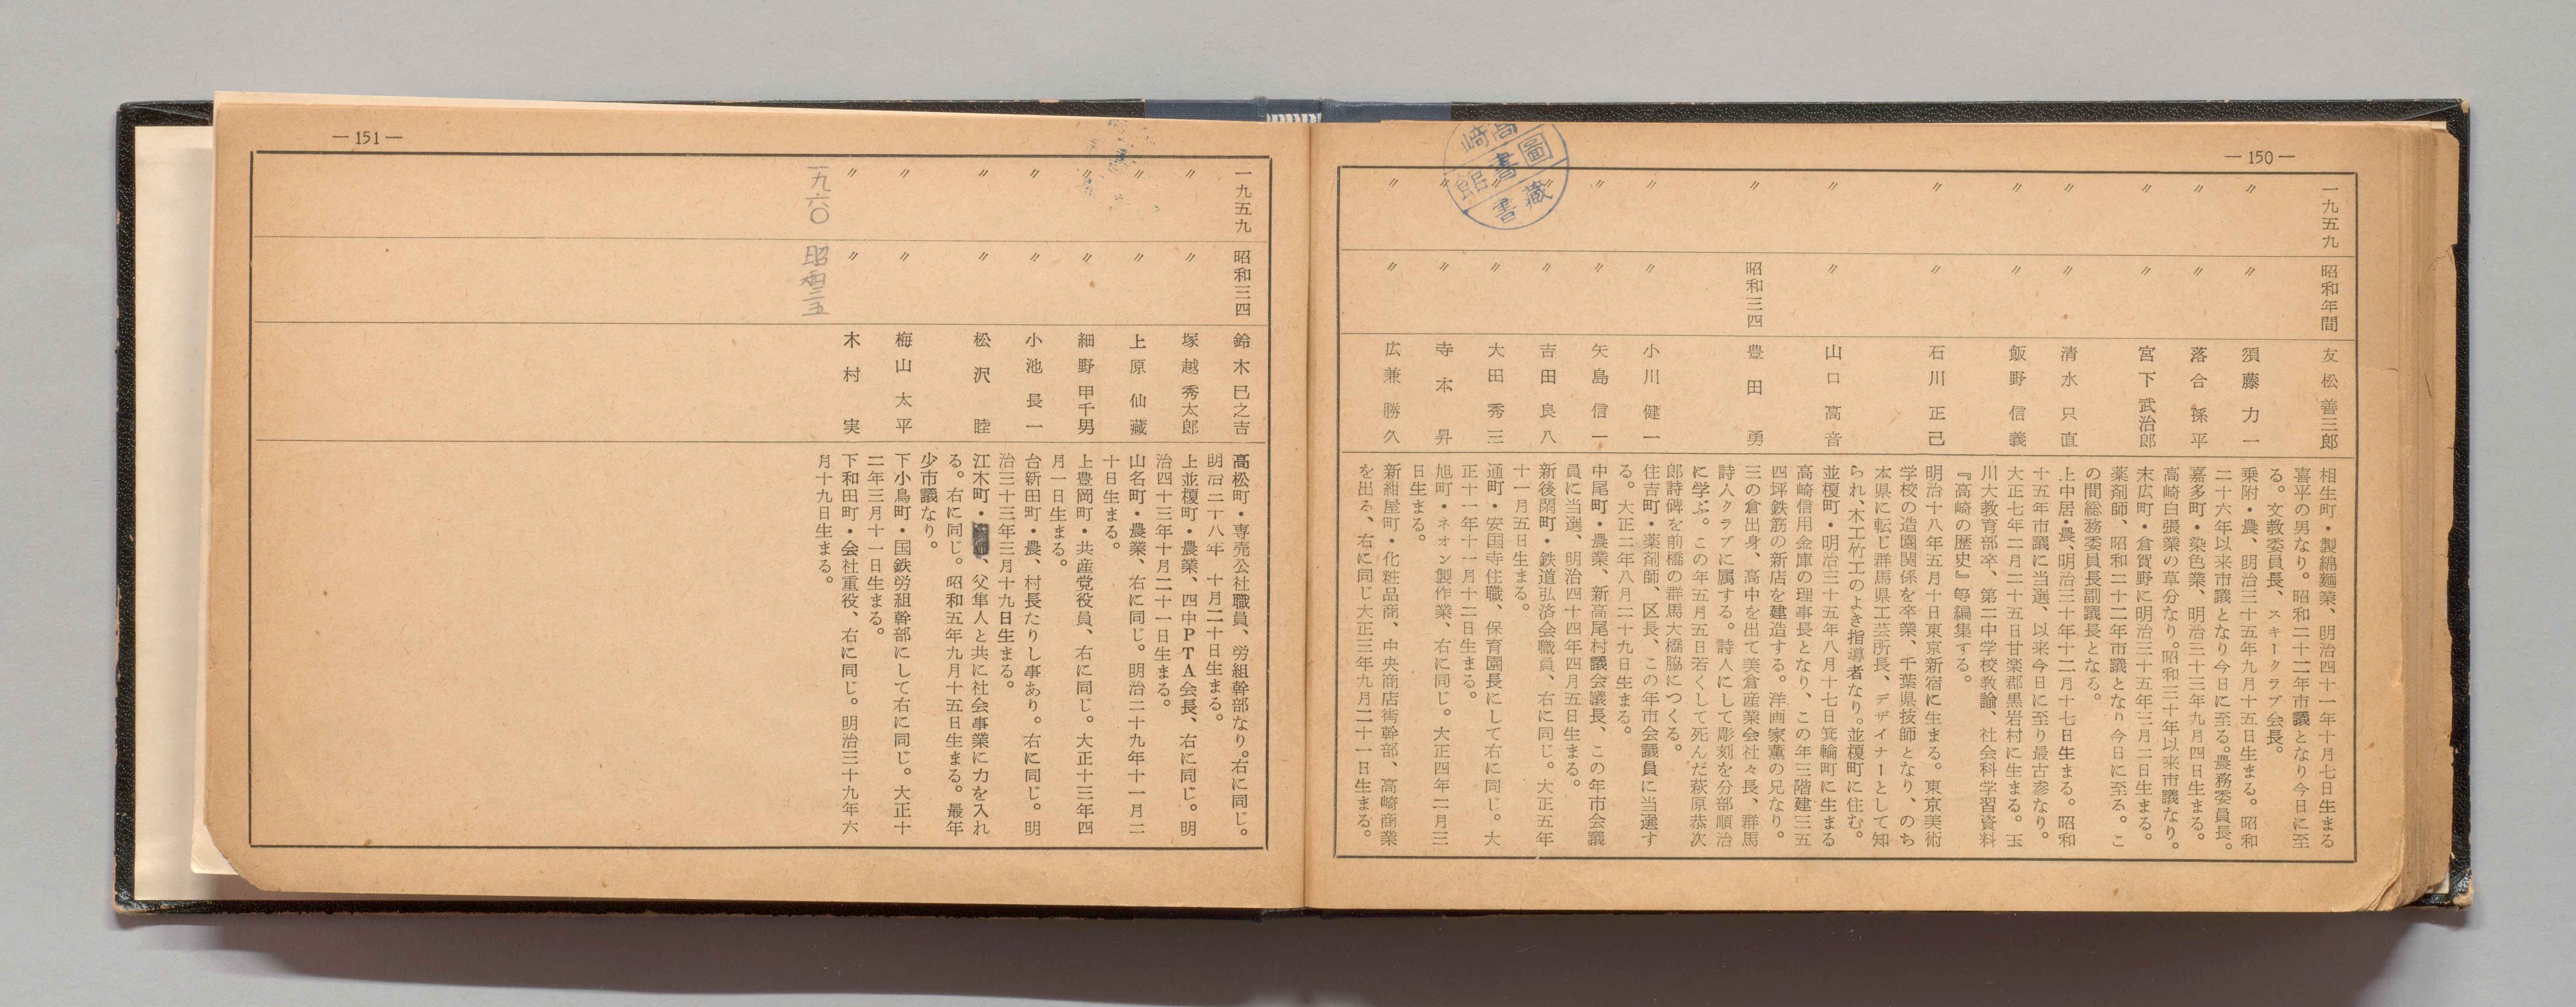 — 150 —
一九五九 昭和年間 友松善三郎 相生町・製綿麵業、明治四十一年十月七日生まる
喜平の男なり。昭和二十二年市議となり今日に至
る。文教委員長、スキークラブ会長。
〃 〃 須藤力一 乗附・農、明治三十五年九月十五日生まる。昭和
二十六年以来市議となり今日に至る。農務委員長。
〃 〃 落合孫平 嘉多町・染色業、明治三十三年九月四日生まる。
高崎白張業の草分なり。昭和三十年以来市議なり。
〃 〃 宮下武治郎 末広町・倉賀野に明治三十五年三月二日生まる。
薬剤師、昭和二十二年市議となり今日に至る。こ
の間総務委員長副議長となる。
〃 〃 清水只直 上中居・農、明治三十年十二月十七日生まる。昭和
十五年市議に当選、以来今日に至り最古参なり。
〃 〃 飯野信義 大正七年二月二十五日甘楽郡黒岩村に生まる。玉
川大教育部卒、第二中学校教諭、社会科学習資料
『高崎の歴史』等編集する。
〃 〃 石川正己 明治十八年五月十日東京新宿に生まる。東京美術
学校の造園関係を卒業、千葉県技師となり、のち
本県に転じ群馬県工芸所長、デザイナーとして知
られ、木工竹工のよき指導者なり。並榎町に住む。
〃 〃 山口高音 並榎町・明治三十五年八月十七日箕輪町に生まる
高崎信用金庫の理事長となり、この年三階建三五
四坪鉄筋の新店を建造する。洋画家薫の兄なり。
〃 昭和三四 豊田勇 三の倉出身、高中を出て美倉産業会社々長、群馬
詩人クラブに属する。詩人にして彫刻を分部順治
に学ぶ。この年五月五日若くして死んだ萩原恭次
郎詩碑を前橋の群馬大橋脇につくる。
〃 小川健一 住吉町・薬剤師、区長、この年市会議員に当選す
る。大正二年八月二十九日生まる。
〃 〃 矢島信一 中尾町・農業、新高尾村議会議長、この年市会議
員に当選、明治四十四年四月五日生まる。
〃 〃 吉田良八 新後閑町・鉄道弘済会職員、右に同じ。大正五年
十一月五日生まる。
〃 〃 大田秀三 通町・安国寺住職、保育園長にして右に同じ。大
正十一年十一月十二日生まる。
〃 〃 寺本昇 旭町・ネオン製作業、右に同じ。大正四年二月三
日生まる。
〃 〃 広兼勝久 新紺屋町・化粧品商、中央商店街幹部、高崎商業
を出る、右に同じ大正三年九月二十一日生まる。
高崎
圖書館
藏書
— 151 —
一九五九 昭和三四 鈴木巳之吉 高松町・専売公社職員、労組幹部なり。右に同じ。
明治二十八年十月二十日生まる。
〃 〃 塚越秀太郎 上並榎町・農業、四中PTA会長、右に同じ。明
治四十三年十月二十一日生まる。
〃 〃 上原仙藏 山名町・農業、右に同じ。明治二十九年十一月二
十日生まる。
〃 〃 細野甲千男 上豊岡町・共産党役員、右に同じ。大正十三年四
月一日生まる。
〃 〃 小池長一 台新田町・農、村長たりし事あり。右に同じ。明
治三十三年三月十九日生まる。
〃 〃 松沢睦 江木町・、父隼人と共に社会事業に力を入れ
る。右に同じ。昭和五年九月十五日生まる。最年
少市議なり。
〃 〃 梅山太平 下小鳥町・国鉄労組幹部にして右に同じ。大正十
二年三月十一日生まる。
〃 〃 木村実 下和田町・会社重役、右に同じ。明治三十九年六
月十九日生まる。
一九六〇 昭和三五